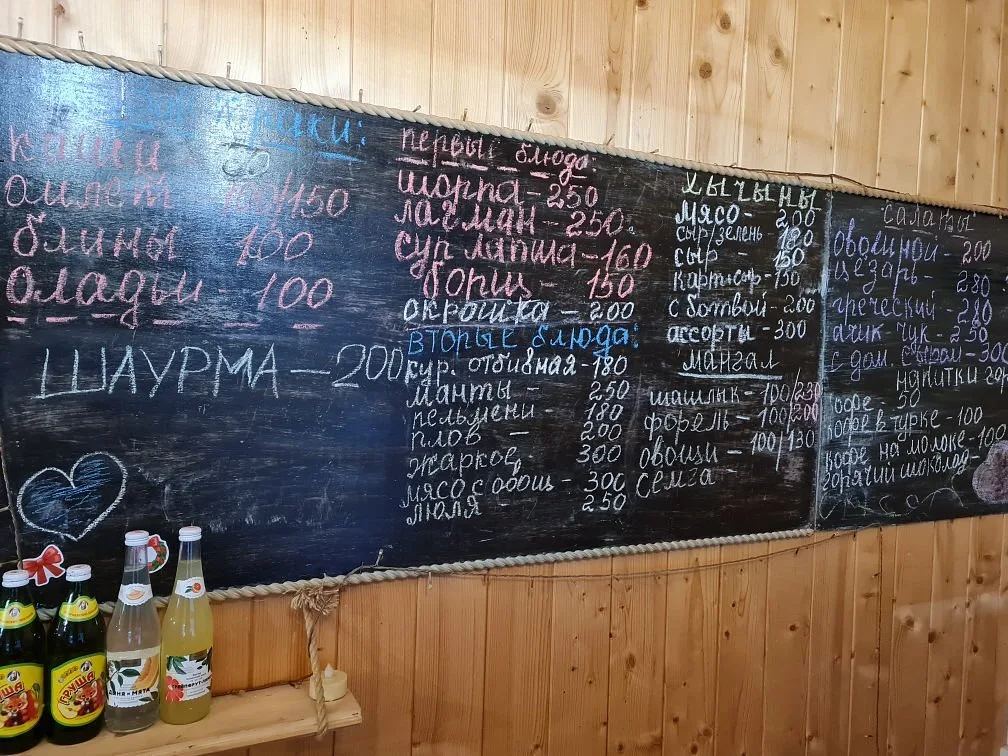 Завтраки:
каши - 80
омлет 100/150
блины 100
оладьи - 100
ШАУРМА - 200
первые блюда:
шорпа - 250
лагман - 250
суп лапша - 160
борщ - 150
окрошка - 200
вторые блюда:
кур. отбивная - 180
манты - 250
пельмени - 180
плов - 200
жаркое - 300
мясо с овощ - 300
люля - 250
ХЫЧЫНЫ
мясо - 200
сыр/зелень 180
сыр - 150
карт+сыр - 150
с ботвой - 200
ассорты - 300
мангал
шашлык - 100/230
форель - 100/200
овощи - 100/130
семга
салаты
овощной - 200
цезарь - 280
греческий - 280
ачик чук - 250
с дом. сыром - 300
напитки гор
кофе - 50
кофе в турке - 100
кофе на молоке - 100
горячий шоколад -
ГРУША
ДЫНЯ И МЯТА
ГРЕЙПФРУТ